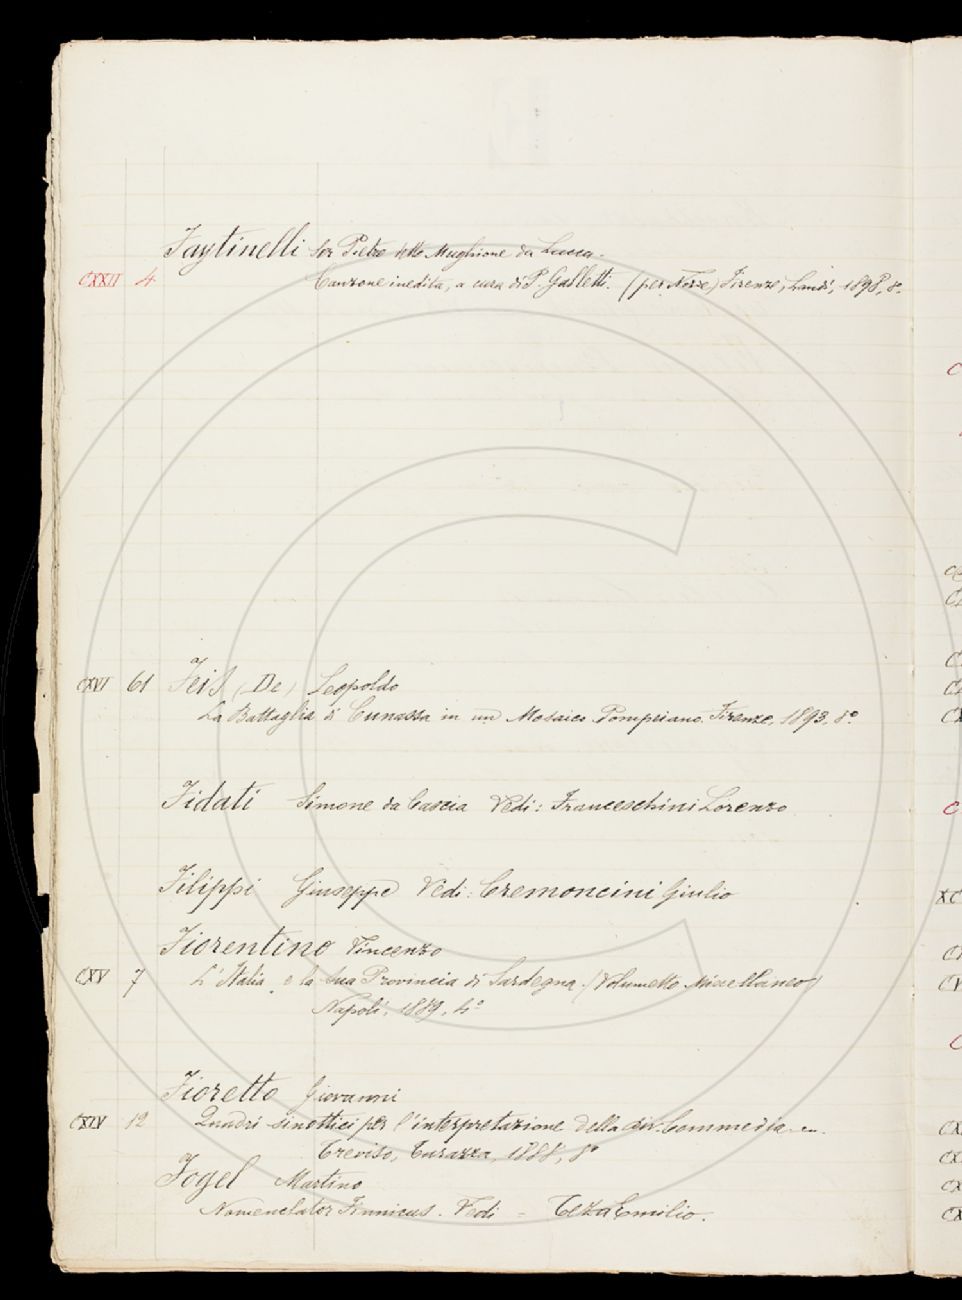 Faytinelli ser Pietro detto Mughione da Lucca.
CXXII 4 Canzone inedita, a cura di P. Galletti. (per Nozze) Firenze, Landi, 1898, 8º.
CXVI 61 Feis (De) Leopoldo
La Battaglia di Cunassa in un Mosaico Pompeiano. Firenze, 1893, 8º
Fidati Simone da Cascia Vedi: Franceschini Lorenzo
Filippi Giuseppe Vedi: Cremoncini Giulio
Fiorentino Vincenzo
CXV 7 L'Italia e la sua Provincia di Sardegna. (Volumetto Miscellaneo)
Napoli, 1889, 4º
Fioretto Giovanni
CXIV 12 Quadri sinottici per l'interpretazione della div. Commedia
Treviso, Turazza, 1888, 8º
Fogel Martino
Nomenclator Finnicus. Vedi = Teza Emilio.